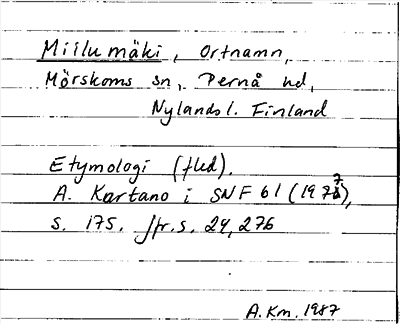 Miilumäki, Ortnamn,
Mörskoms sn, Pernå hd,
Nylands l. Finland
Etymologi (fled).
A. Kartano i SNF 61 (1977),
s. 175. Jfr. s. 24, 276
A. Km. 1987